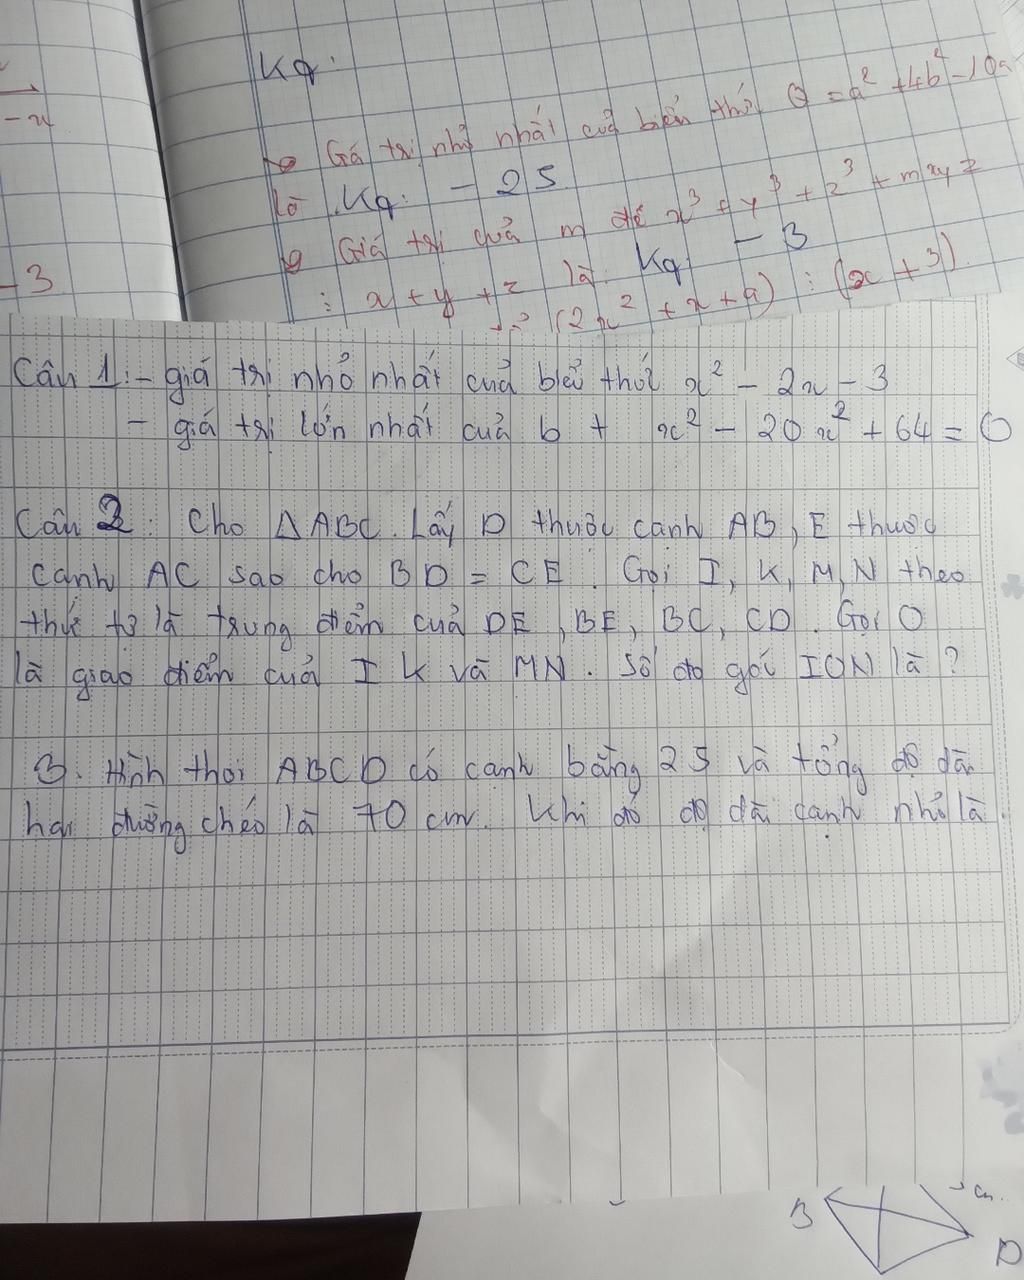 Kq:
-x
Giá trị nhỏ nhất của biển thứ Q = a² + 4b² - 10a
là Kq: - 25
Giá trị của m để x³ + y³ + z³ + mxyz
⋮ x + y + z là. Kq - 3
- 3
(2x² + x + a) ⋮ (x + 3).
Câu 1: - giá trị nhỏ nhất của biể thứ x² - 2x - 3
- giá trị lớn nhất của b + x² - 20x² + 64 = 0
Câu 2: Cho △ABC. Lấy D thuộc cạnh AB, E thuộc
cạnh AC sao cho BD = CE. Gọi I, K, M, N theo
thứ tự là trung điểm của DE, BE, BC, CD. Gọi O
là giao điểm của IK và MN. Số đo gói ION là?
3. Hình thoi ABCD có cạnh bằng 25 và tổng độ dài
hai đường chéo là 70 cm. Khi đó độ dài cạnh nhỏ là
B
D